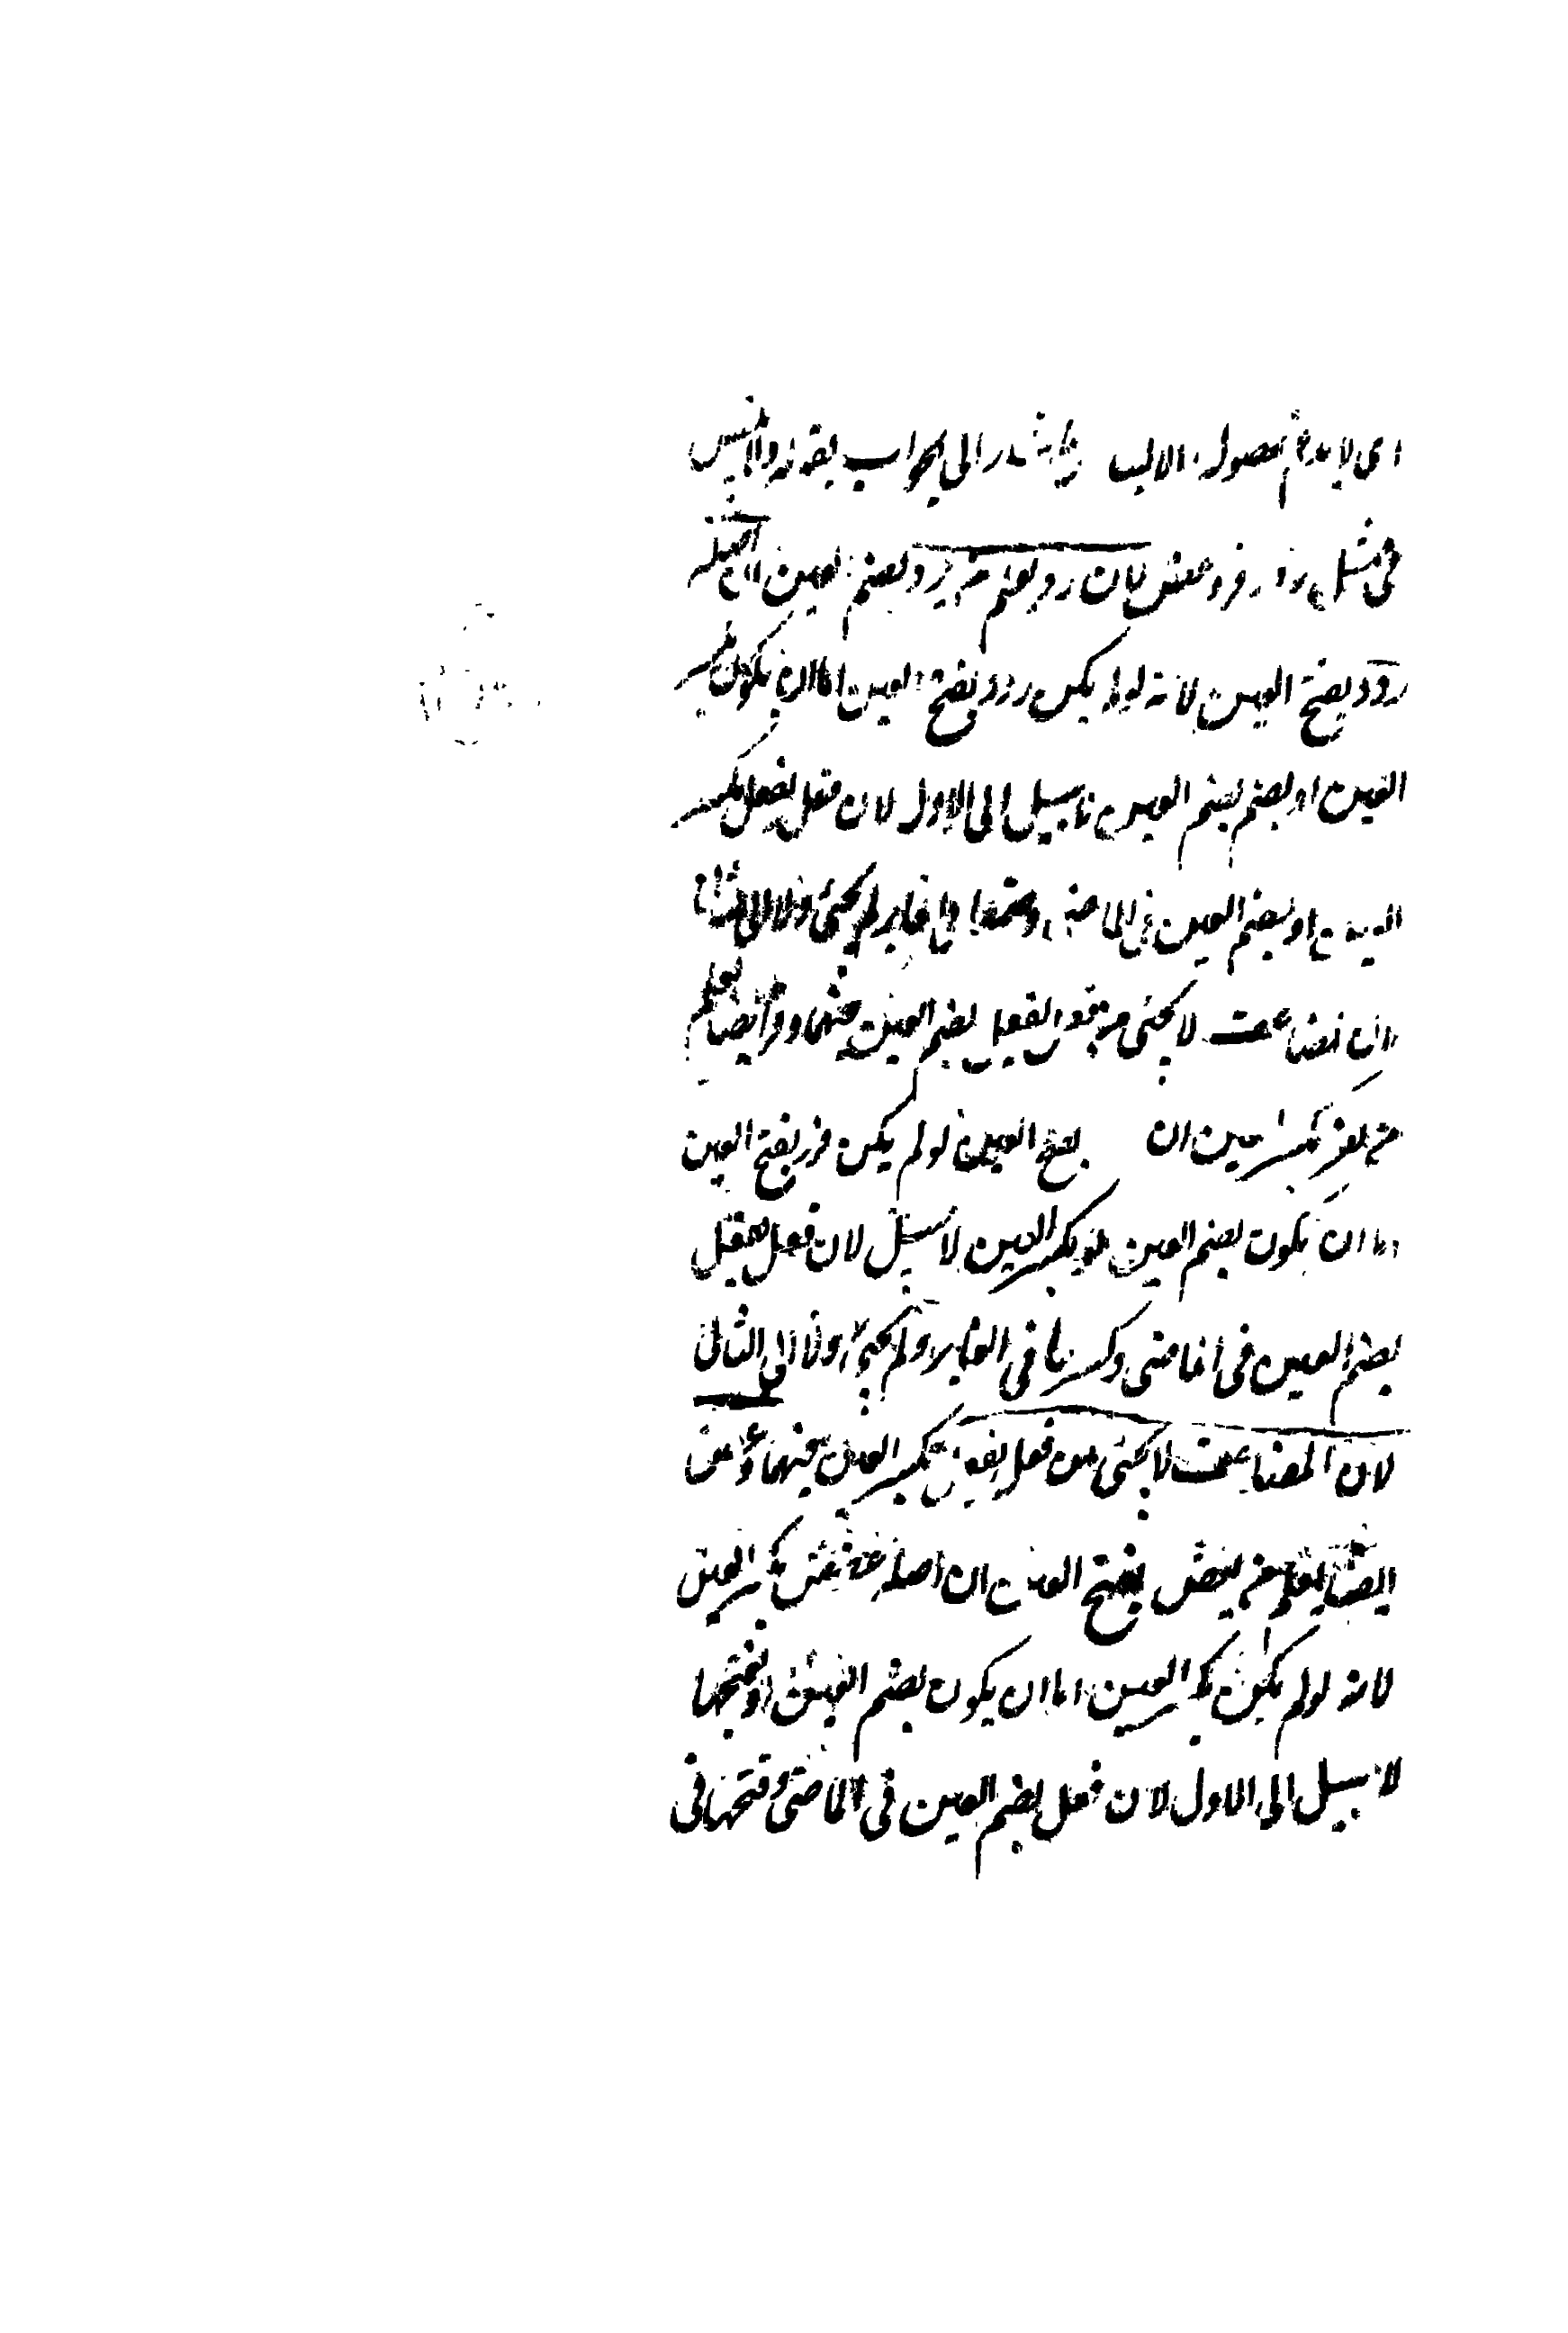 اى لا يدغم لحصول الالتباس فاشار الى الجواب بقوله ولا يلتبس
فى مثل رد و فر و عض لان رد يعلم من يرد بضم العين ان اصله
ردد بفتح العين لانه لو لم يكن ردد بفتح العين اما ان يكون بكسر
العين او بضم العين لا سبيل الى الاول لان فعل يفعل بكسر
العين او بضم العين فى الماضى وضمها فى الغابر لم يجئ ولا الى الثانى
لان المضاعف لا يجئ من فعل يفعل بضم العين فيهما وفر ايضا يعلم
من يفر بكسر العين ان بفتح العين لو لم يكن فرر بفتح العين
اما ان يكون بضم العين او بكسر العين لا سبيل لان فعل يفعل
بضم العين فى الماضى وكسرها فى الغابر لم يجئ ولا الى الثانى
لان المضاعف لا يجئ من فعل يفعل بكسر العين فيهما وعض
ايضا يعلم من يعض بفتح العين ان اصله عضض بكسر العين
لانه لو لم يكن بكسر العين اما ان يكون بضم العين او بفتحها
لا سبيل الى الاول لان فعل بضم العين فى الماضى وفتحها فى